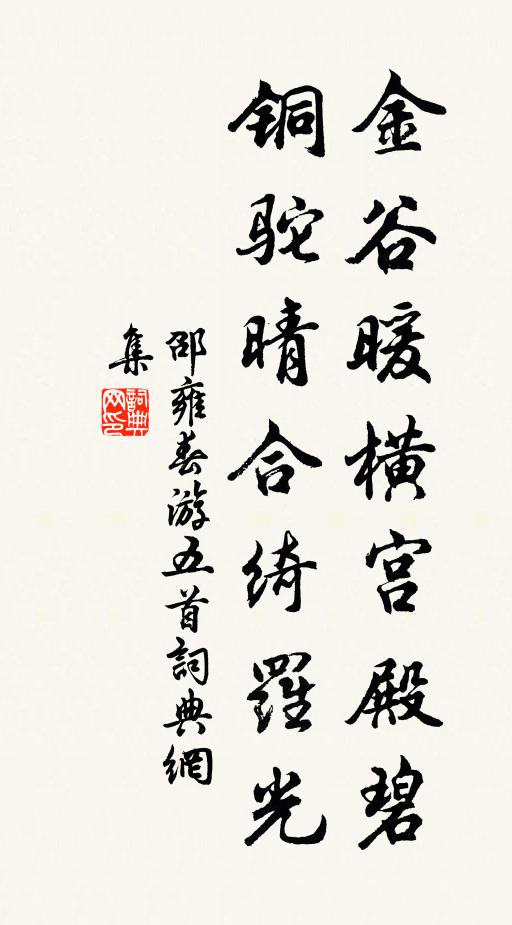 金谷暖橫宫殿碧
铜驼晴合绮羅光
邵雍春游五首詞典網
集
詞典
网印